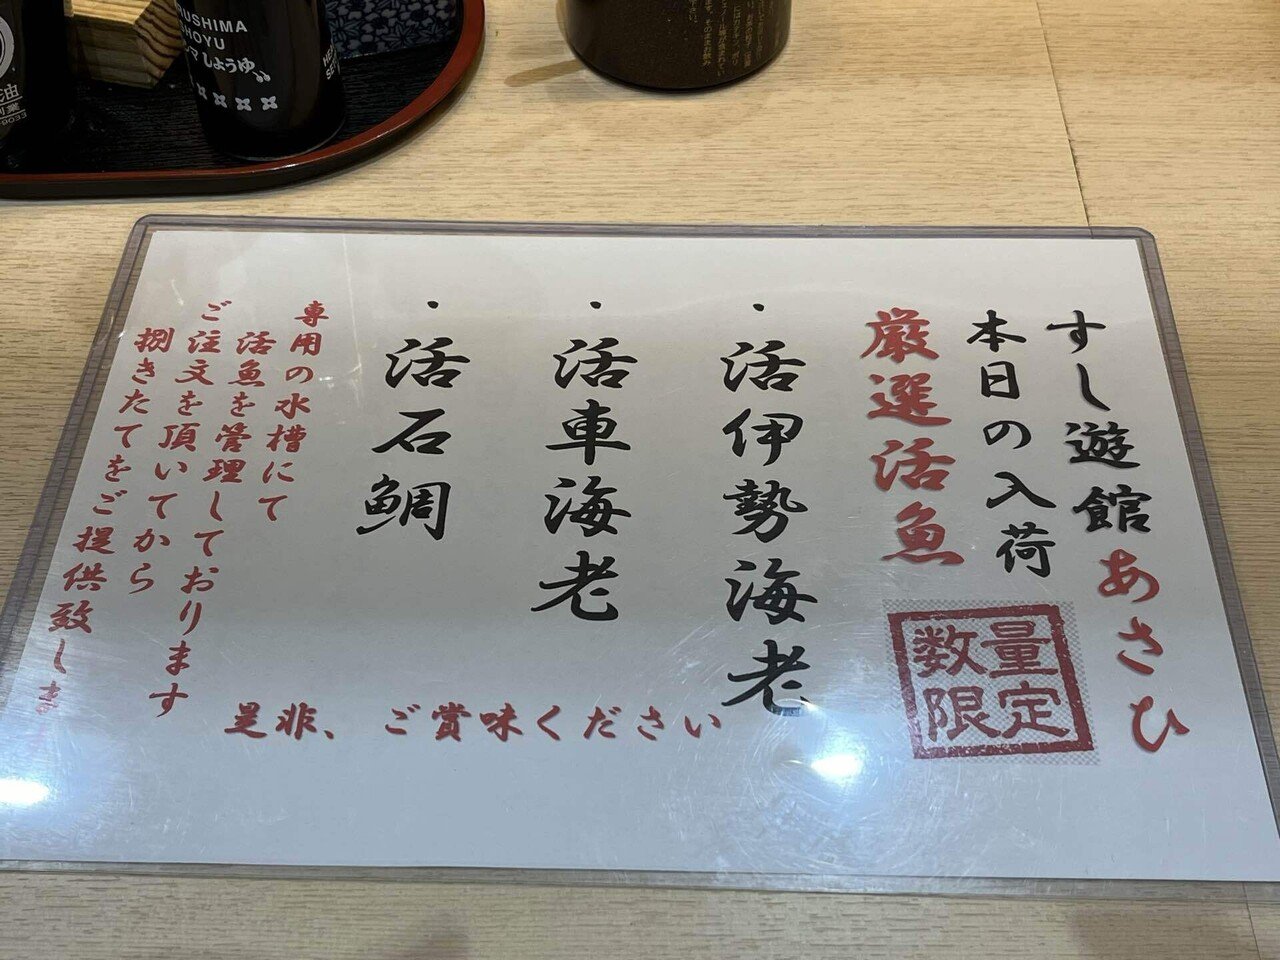 すし遊館あさひ
本日の入荷
厳選活魚
数量
限定
・活伊勢海老
・活車海老
・活石鯛
専用の水槽にて
活魚を管理しております
ご注文を頂いてから
捌きたてをご提供致します
是非、ご賞味ください
USHIMA
HOYU
しょうゆ
油